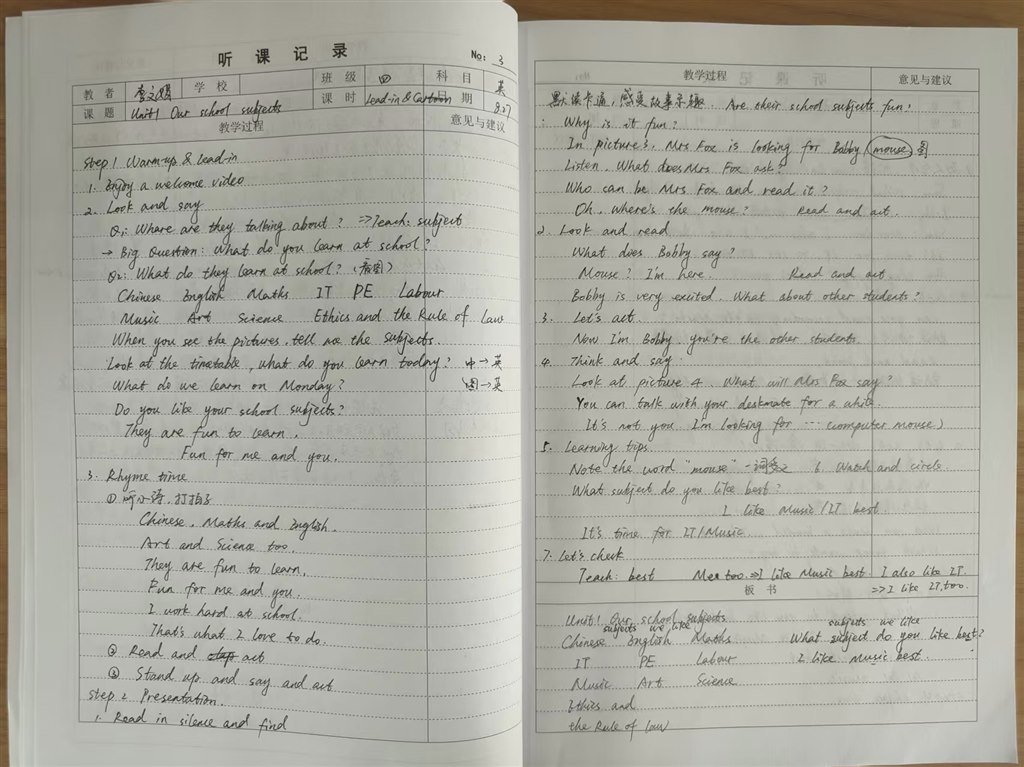 听 课 记 录
No: 3
教 者 李文娟 学 校 班 级 四 科 目 英
课 题 Unit1 Our school subjects 课 时 Lead-in & Cartoon 日 期 8.27
教学过程 意见与建议
Step 1 Warm-up & Lead-in
1. Enjoy a welcome video
2. Look and say
Q1: Whare are they talking about? => Teach: subject
→ Big Question: What do you learn at school?
Q2: What do they learn at school? (看图)
Chinese English Maths IT PE Labour
Music Art Science Ethics and the Rule of Law
When you see the pictures, tell me the subjects.
Look at the timetable, what do you learn today? 中→英
What do we learn on Monday? 图→英
Do you like your school subjects?
They are fun to learn.
Fun for me and you.
3. Rhyme time
① 听小诗,打拍子
Chinese, Maths and English.
Art and Science too.
They are fun to learn.
Fun for me and you.
I work hard at school.
That's what I love to do.
② Read and act
③ Stand up and say and act
Step 2 Presentation.
1. Read in silence and find
教学过程 意见与建议
默读卡通,感受故事乐趣. Are their school subjects fun?
Why is it fun?
In picture 3, Mrs Fox is looking for Bobby. mouse 图
Listen, What does Mrs Fox ask?
Who can be Mrs Fox and read it?
Oh, where's the mouse? Read and act.
2. Look and read
What does Bobby say?
Mouse? I'm here. Read and act
Bobby is very excited. What about other students?
3. Let's act.
Now I'm Bobby, you're the other students.
4. Think and say.
Look at picture 4. What will Mrs Fox say?
You can talk with your deskmate for a while.
It's not you. I'm looking for ... (computer mouse)
5. Learning tips
Note the word "mouse" 一词多义 6. Watch and circle.
What subject do you like best?
I like Music/IT best.
It's time for IT/Music
7. Let's check
Teach: best Me too. => I like Music best. I also like IT.
=> I like IT, too.
板 书
Unit1 Our school subjects
subjects we like subjects we like
Chinese English Maths What subject do you like best?
IT PE Labour I like Music best
Music Art Science
Ethics and
the Rule of law